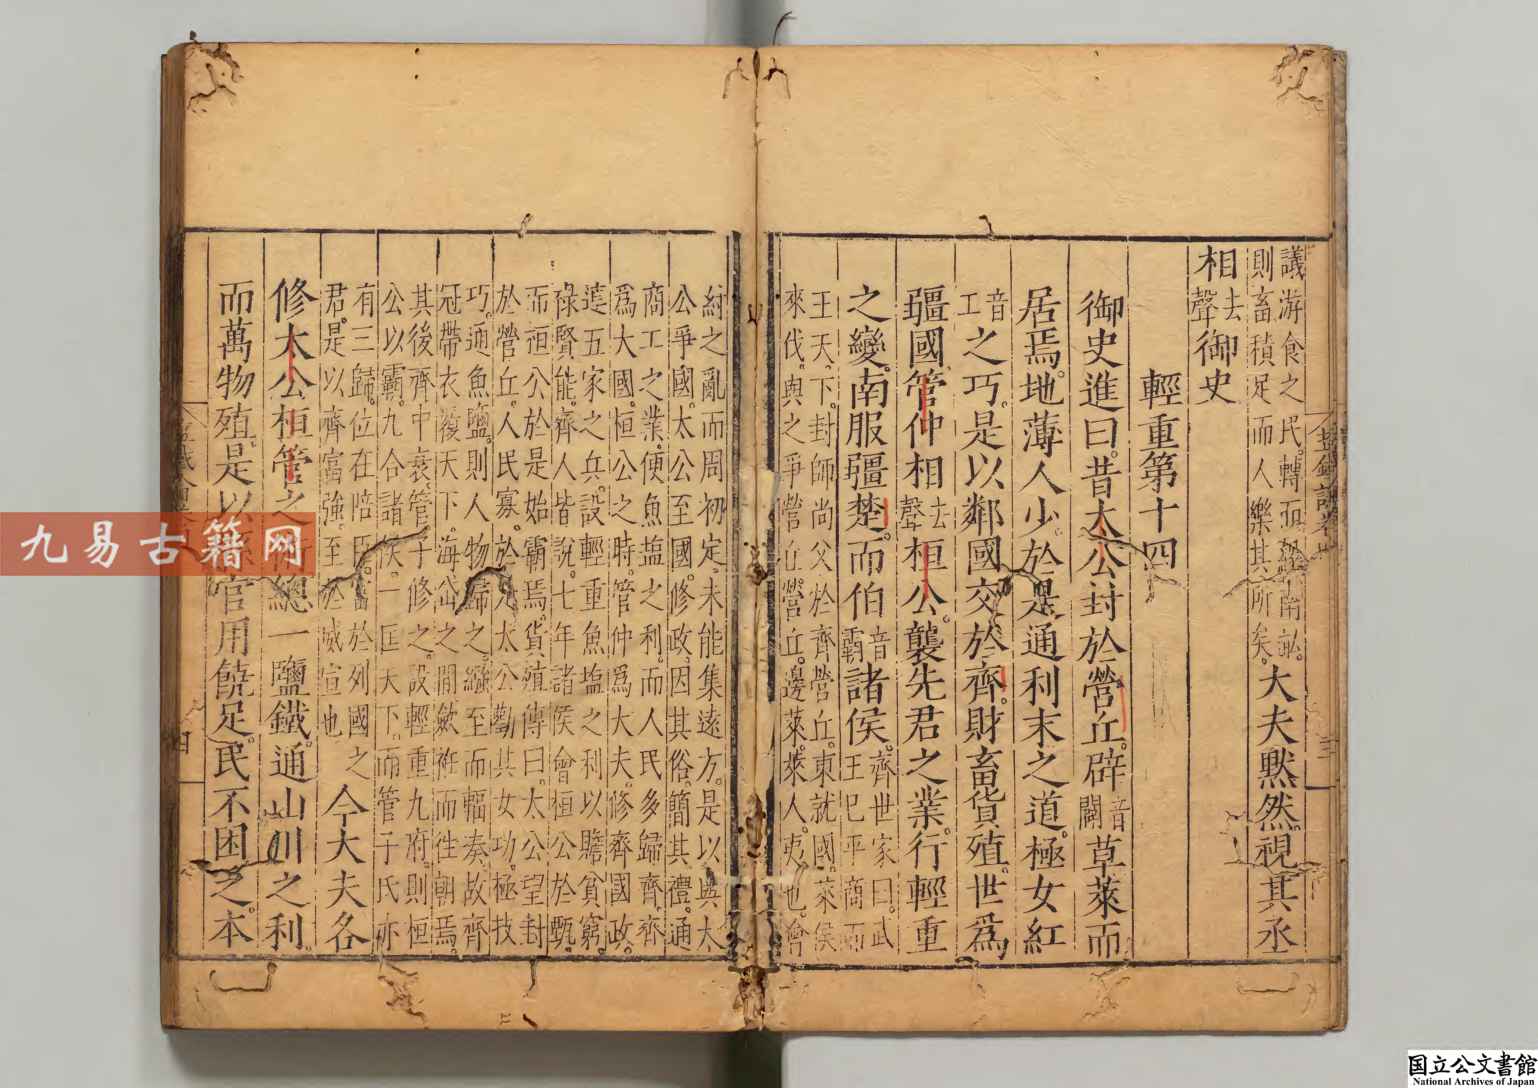 議游食之民轉
則畜積足而人樂其所矣。大夫黙然。視其丞
相去聲御史
輕重第十四
御史進曰。昔太公封於營丘。辟音闢草萊而
居焉。地薄人少。於是通利末之道。極女紅
音工之巧。是以鄰國交於齊。財畜貨殖。世爲
疆國。管仲相去聲桓公。襲先君之業。行輕重
之變。南服彊楚。而伯音霸諸侯。齊世家曰。武
王已平商而
王天下。封師尚父於齊營丘。東就國。萊侯
來伐。與之爭營丘。營丘。邊萊。萊人。夷也。會
紂之亂而周初定。未能集遠方。是以與太
公爭國。太公至國。修政。因其俗。簡其禮。通
商工之業。便魚塩之利。而人民多歸齊。齊
爲大國。桓公之時。管仲爲大夫。修齊國政。
連五家之兵。設輕重魚塩之利以贍貧窮。
祿賢能。齊人皆說。七年諸侯會桓公於甄。
而桓公於是始霸焉。貨殖傳曰。太公望封
於營丘。人民寡。於是太公勸其女功。極技
巧。通魚鹽。則人物歸之。繈至而輻湊。故齊
冠帶衣履天下。海岱之間斂袵而往朝焉。
其後齊中衰。管子修之。設輕重九府。則桓
公以霸。九合諸侯。一匡天下。而管子氏亦
有三歸。位在陪臣。富於列國之
君。是以齊富強。至於威宣也
今大夫各
修太公桓管之術。總一鹽鐵。通山川之利。
而萬物殖。是以縣官用饒足。民不困乏。本
四
九易古籍网
国立公文書館
National Archives of Japan